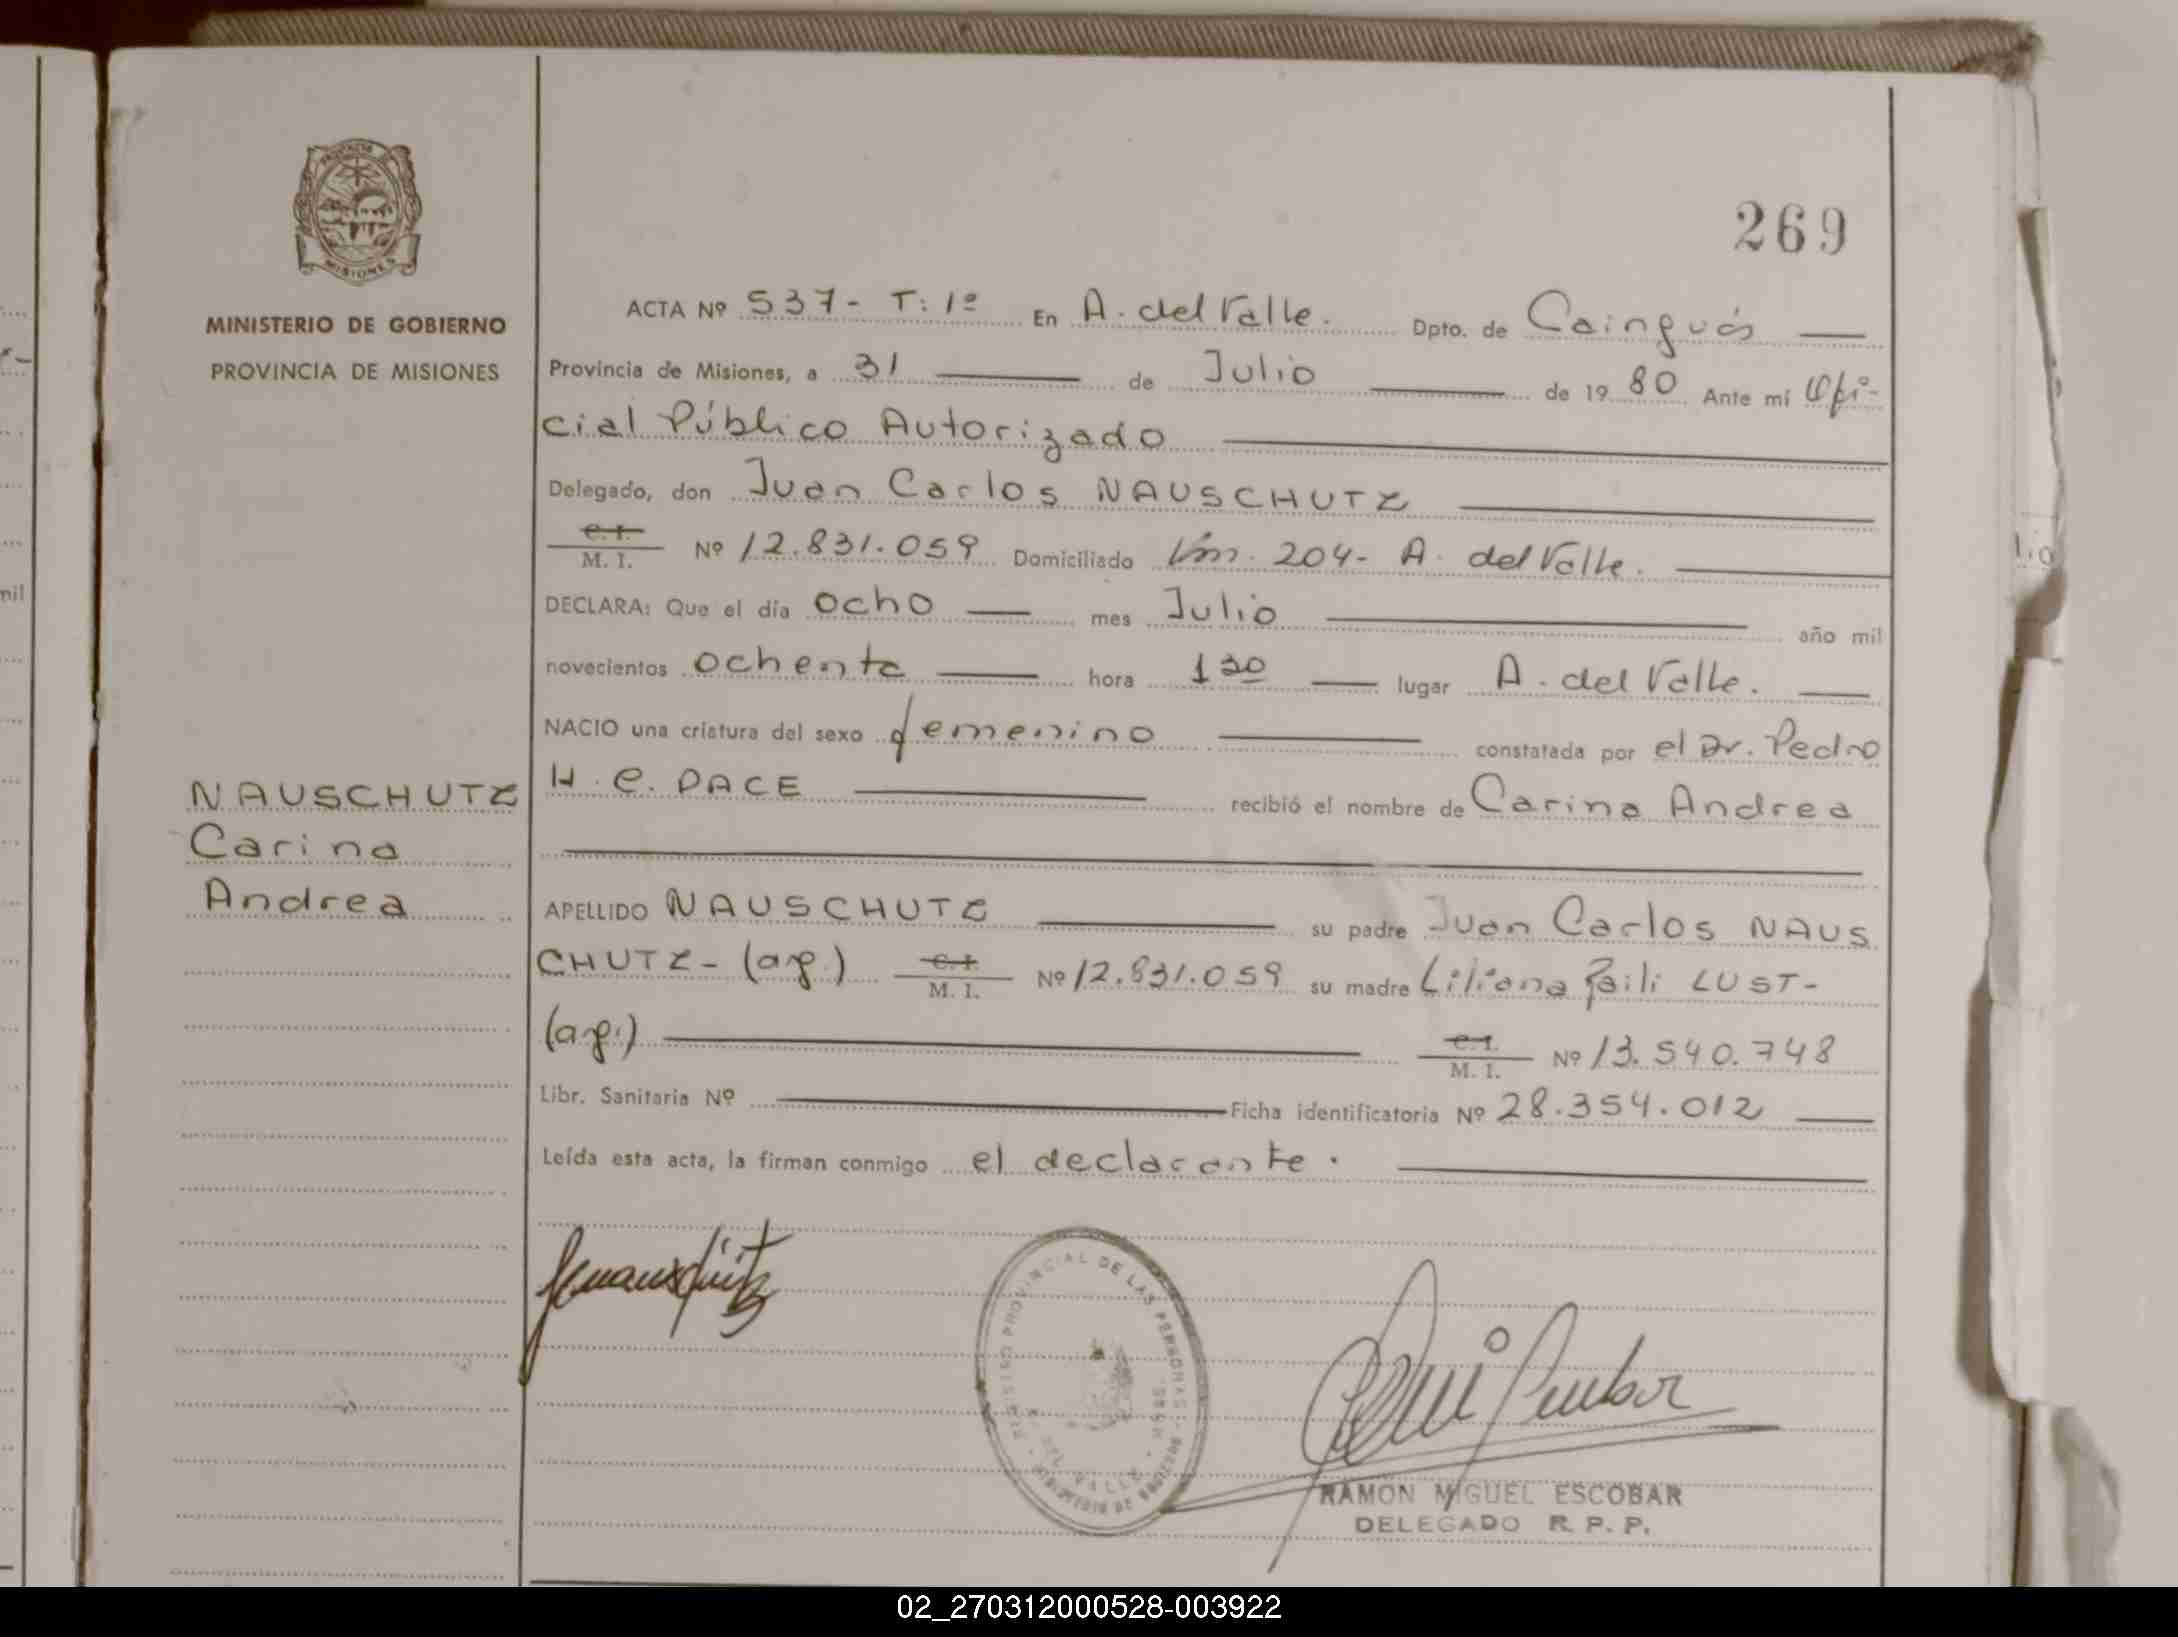 PROVINCIA DE
MISIONES
MINISTERIO DE GOBIERNO
PROVINCIA DE MISIONES
NAUSCHUTZ
Carina
Andrea
269
ACTA Nº 537- T: 1º En A. del Valle. Dpto. de Cainguás
Provincia de Misiones, a 31 de Julio de 19 80 Ante mi Ofi-
cial Público Autorizado
Delegado, don Juan Carlos NAUSCHUTZ
C. I. M. I. Nº 12.831.059 Domiciliado Km. 204- A. del Valle.
DECLARA: Que el día ocho mes Julio año mil
novecientos ochenta hora 1 30 lugar A. del Valle.
NACIO una criatura del sexo femenino constatada por el Dr. Pedro
H. C. PACE recibió el nombre de Carina Andrea
APELLIDO NAUSCHUTZ su padre Juan Carlos NAUS
CHUTZ- (arg.) C. I. M. I. Nº 12.831.059 su madre Liliana Raili LUST-
(arg.) C. I. M. I. Nº 13.540.748
Libr. Sanitaria Nº Ficha identificatoria Nº 28.354.012
Leída esta acta, la firman conmigo el declarante.
REGISTRO PROVINCIAL DE LAS PERSONAS
DEL VALLE
RAMON MIGUEL ESCOBAR
DELEGADO R. P. P.
mil
lio
02_270312000528-003922